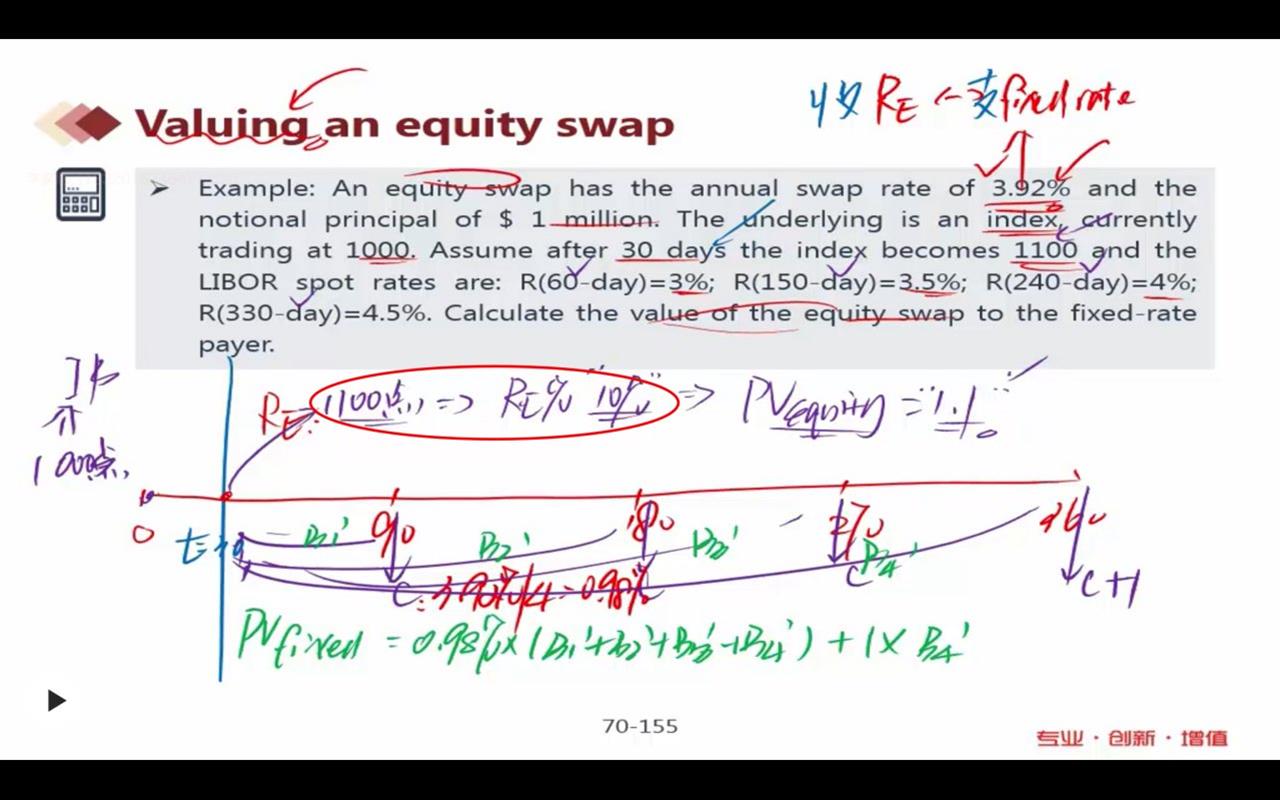 收 RE ← 支 fixed rate
Valuing an equity swap
➢ Example: An equity swap has the annual swap rate of 3.92% and the
notional principal of $ 1 million. The underlying is an index, currently
trading at 1000. Assume after 30 days the index becomes 1100 and the
LIBOR spot rates are: R(60-day)=3%; R(150-day)=3.5%; R(240-day)=4%;
R(330-day)=4.5%. Calculate the value of the equity swap to the fixed-rate
payer.
RE: 1100点 => RE% "10%" => PVequity = "1.1"
1000点
0 90 180 270 360
B1' B2' B3' B4'
C: 3.92%/4 = 0.98% C C+1
PVfixed = 0.98% × (B1'+B2'+B3'+B4') + 1 × B4'
70-155
专业·创新·增值